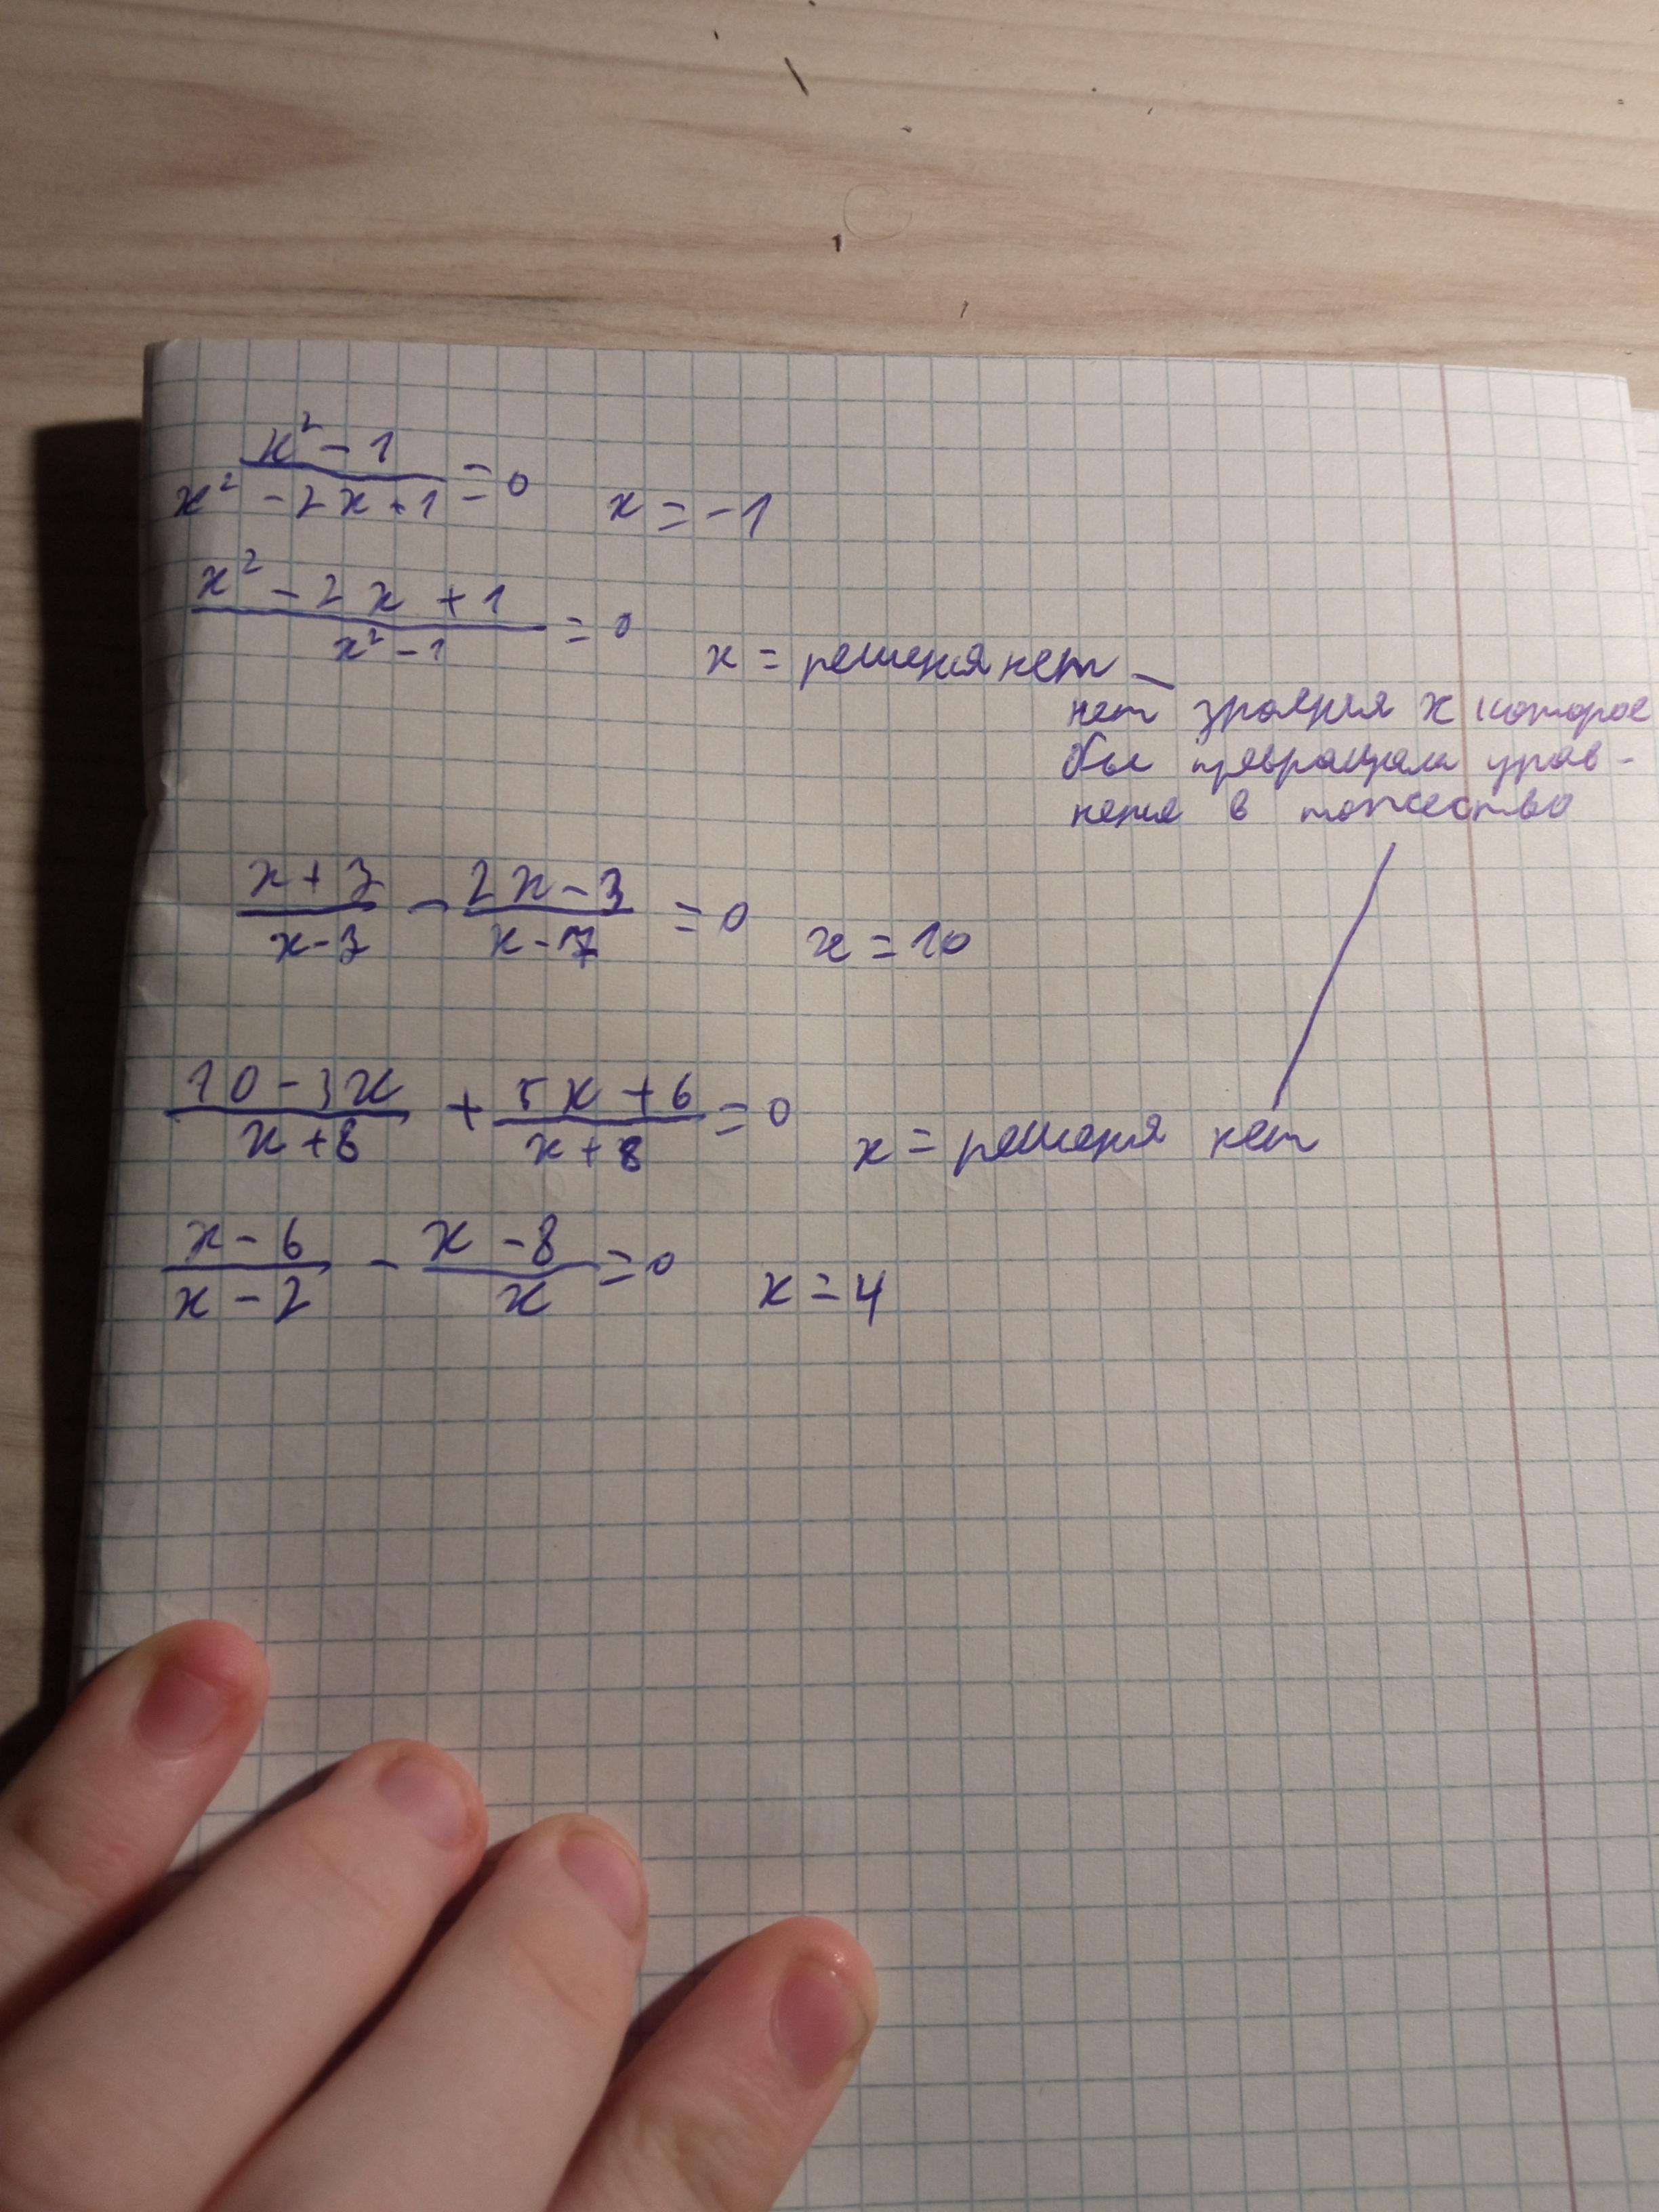 x² - 1
x² - 2x + 1 = 0 x = -1
x² - 2x + 1
x² - 1 = 0 x = решения нет —
нет значения x которое
бы превращали урав-
нение в тождество
x + 3 / x - 3 - 2x - 3 / x - 7 = 0 x = 10
10 - 3x / x + 8 + 5x + 6 / x + 8 = 0 x = решения нет
x - 6 / x - 2 - x - 8 / x = 0 x = 4